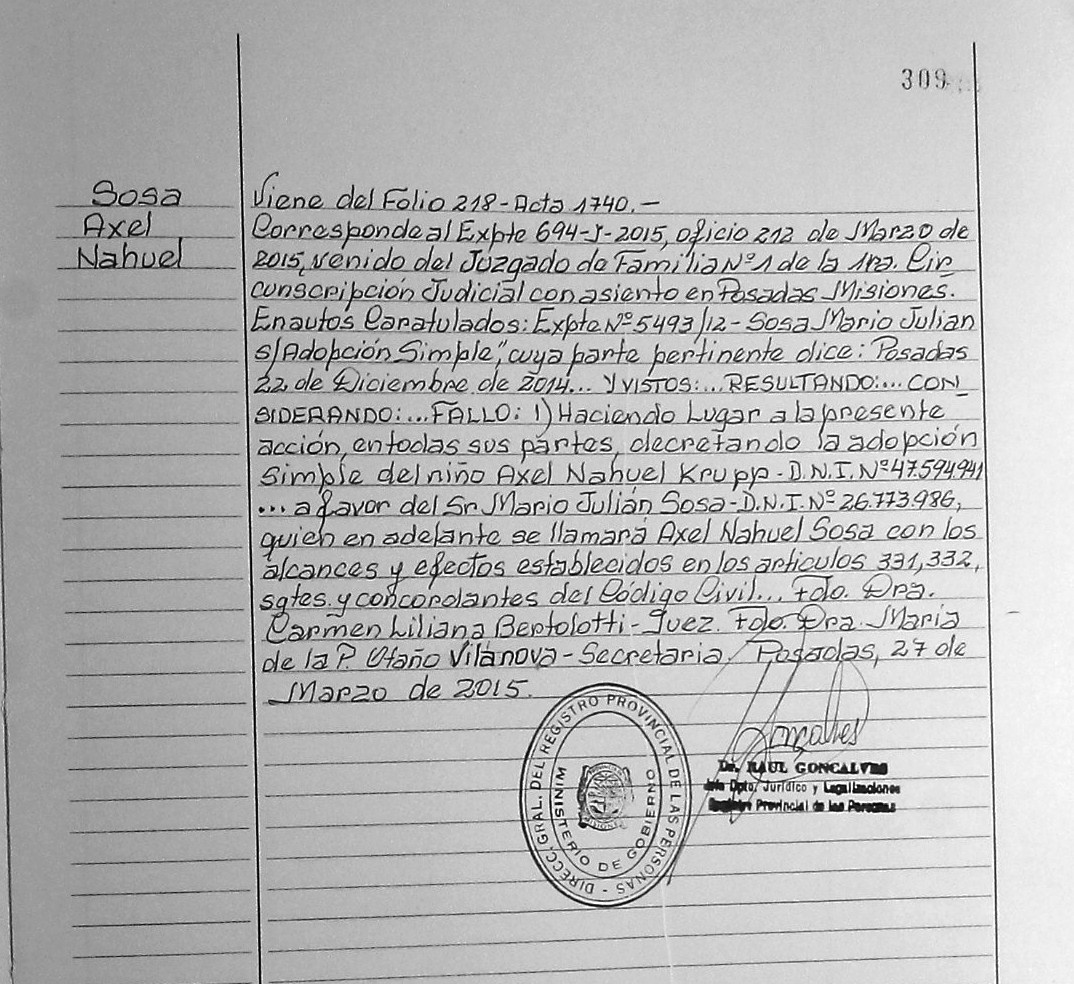 309
Sosa
Axel
Nahuel
Viene del Folio 218 - Acta 1740.-
Corresponde al Expte 694-J-2015, oficio 212 de Marzo de
2015, venido del Juzgado de Familia Nº1 de la 1ra. Cir
cunscripción Judicial con asiento en Posadas Misiones.
En autos Caratulados: Expte Nº 5493/12 - Sosa Mario Julian
s/Adopción Simple", cuya parte pertinente dice: Posadas
22 de Diciembre de 2014... Y VISTOS:... RESULTANDO:... CON
SIDERANDO:... FALLO: 1) Haciendo Lugar a la presente
acción, en todas sus partes, decretando la adopción
Simple del niño Axel Nahuel Krupp - D.N.I. Nº 47.594.941
... a favor del Sr. Mario Julián Sosa - D.N.I. Nº 26.773.986,
quien en adelante se llamará Axel Nahuel Sosa con los
alcances y efectos establecidos en los articulos 331, 332,
sgtes. y concordantes del Código Civil... Fdo. Dra.
Carmen Liliana Bertolotti - Juez. Fdo. Dra. Maria
de la P. Otaño Vilanova - Secretaria. Posadas, 27 de
Marzo de 2015.
Goncalves
Dr. RAUL GONCALVES
Jefe Dpto. Jurídico y Legalizaciones
Registro Provincial de las Personas
DIRECC. GRAL. DEL REGISTRO PROVINCIAL DE LAS PERSONAS -
MINISTERIO DE GOBIERNO